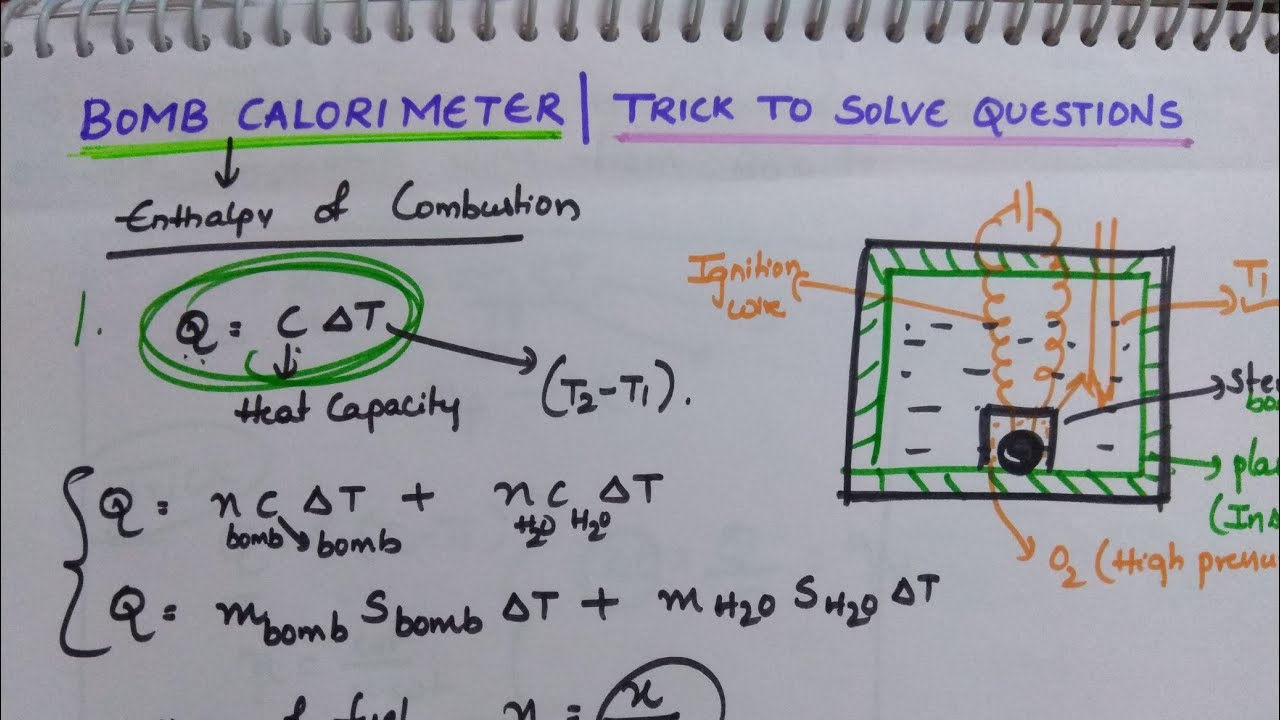 BOMB CALORIMETER | TRICK TO SOLVE QUESTIONS
Enthalpy of Combustion
1. Q = C ΔT
(T2-T1).
Heat Capacity
Q = n C ΔT + n C ΔT
bomb bomb H2O H2O
Q = m bomb S bomb ΔT + m H2O S H2O ΔT
of fuel n = x
Ignition
wire
T1
O2 (High